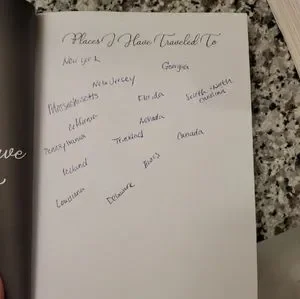 Places I Have Traveled To
New York
Georgia
New Jersey
Massachusetts
Florida
South + North
Carolina
California
Nevada
Pennsylvania
Trinidad
Canada
Iceland
Paris
Louisiana
Delaware